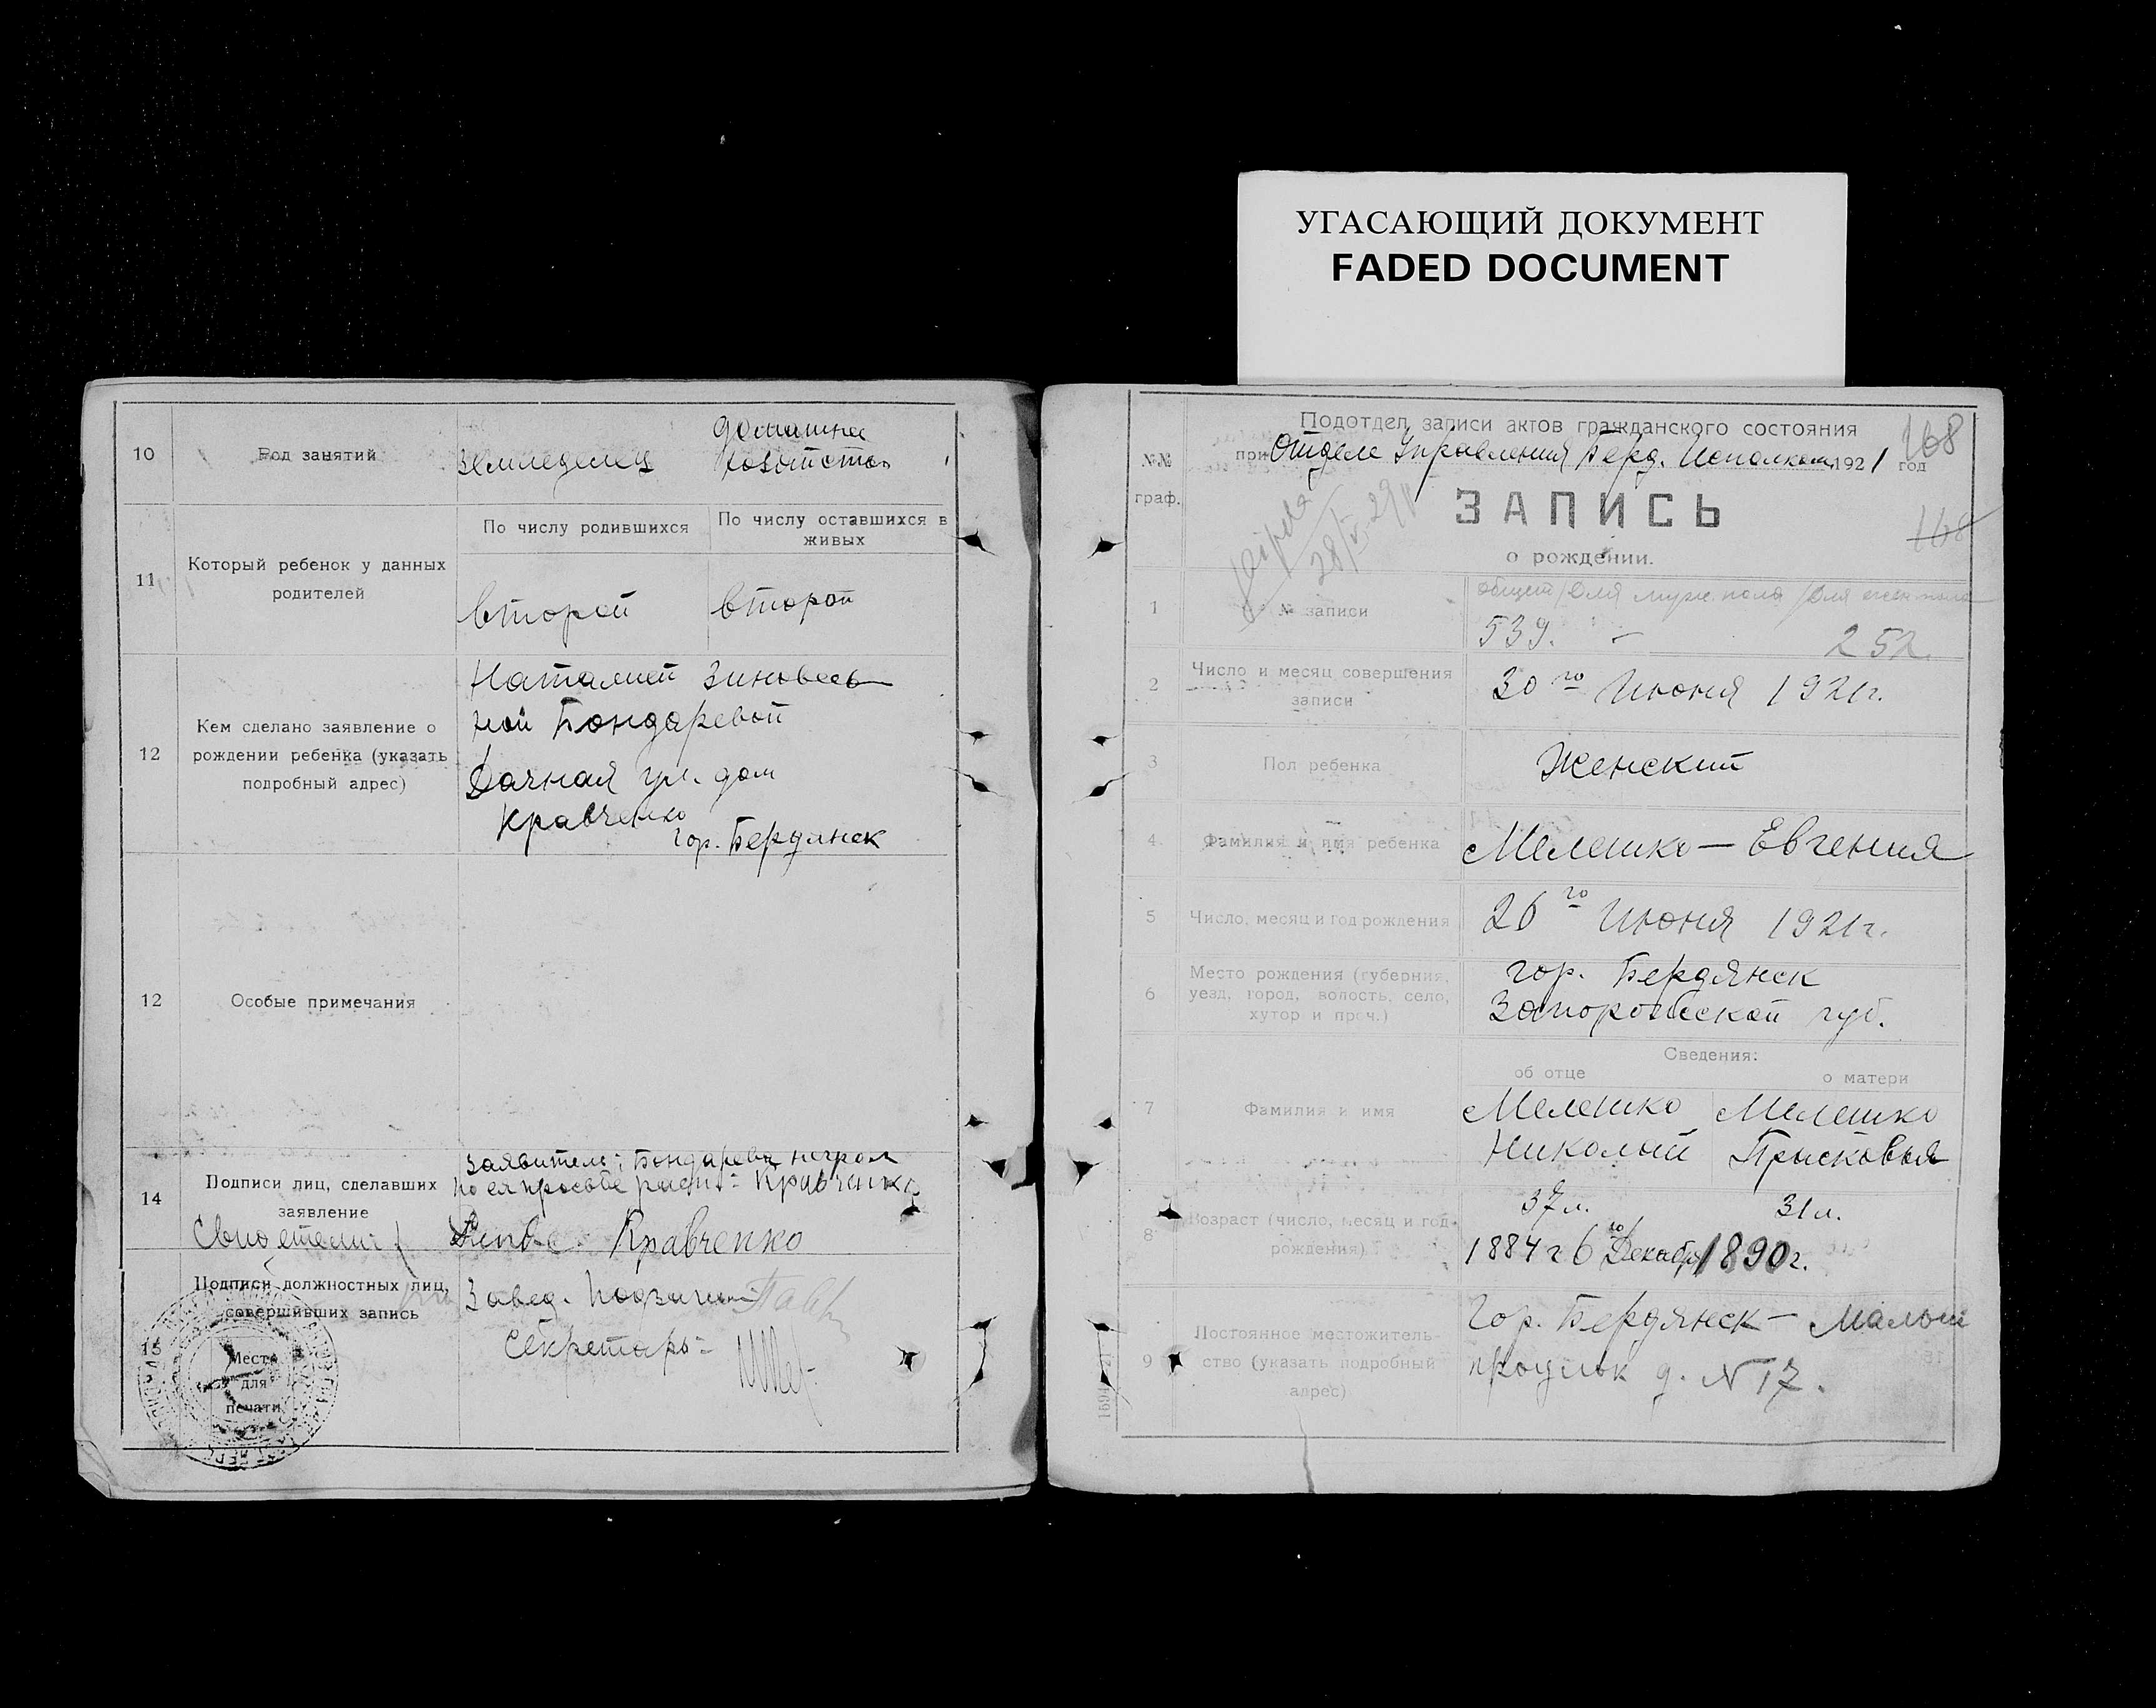 УГАСАЮЩИЙ ДОКУМЕНТ
FADED DOCUMENT
10
Род занятий
земледелец
домашнее
хозяйство
11
Который ребенок у данных
родителей
По числу родившихся
По числу оставшихся в
живых
второй
второй
12
Кем сделано заявление о
рождении ребенка (указать
подробный адрес)
Наталией Зиновьев
ной Бондаревой
Дачная ул. дом
Кравченко
гор. Бердянск
12
Особые примечания
14
Подписи лиц, сделавших
заявление
Свидетели:
Заявитель: Бондарева неграм
по ея просьбе расп. Кравченко
Кравченко
15
Подписи должностных лиц,
совершивших запись
Место
для
печати
Завед.
Секретарь
№№
граф.
Подотдел записи актов гражданского состояния
при Отделе Управления Берд. Исполкома 1921 год
168
ЗАПИСЬ
о рождении.
168
1
№ записи
общей/для мужс. пола/для женс. пола
539. — 252.
2
Число и месяц совершения
записи
30го Июня 1921г.
3
Пол ребенка
Женский
4.
Фамилия и имя ребенка
Мелешко — Евгения
5
Число, месяц и год рождения
26го Июня 1921г.
6
Место рождения (губерния,
уезд, город, волость, село,
хутор и проч.)
гор. Бердянск
Запорожской губ.
Сведения:
об отце
о матери
7
Фамилия и имя
Мелешко
Николай
Мелешко
Прысковья
8
Возраст (число, месяц и год
рождения)
37 л.
1884г 6го Декабря
31 л.
1890г.
9
Постоянное местожитель-
ство (указать подробный
адрес)
Гор. Бердянск — Малый
проулок д. N 17.